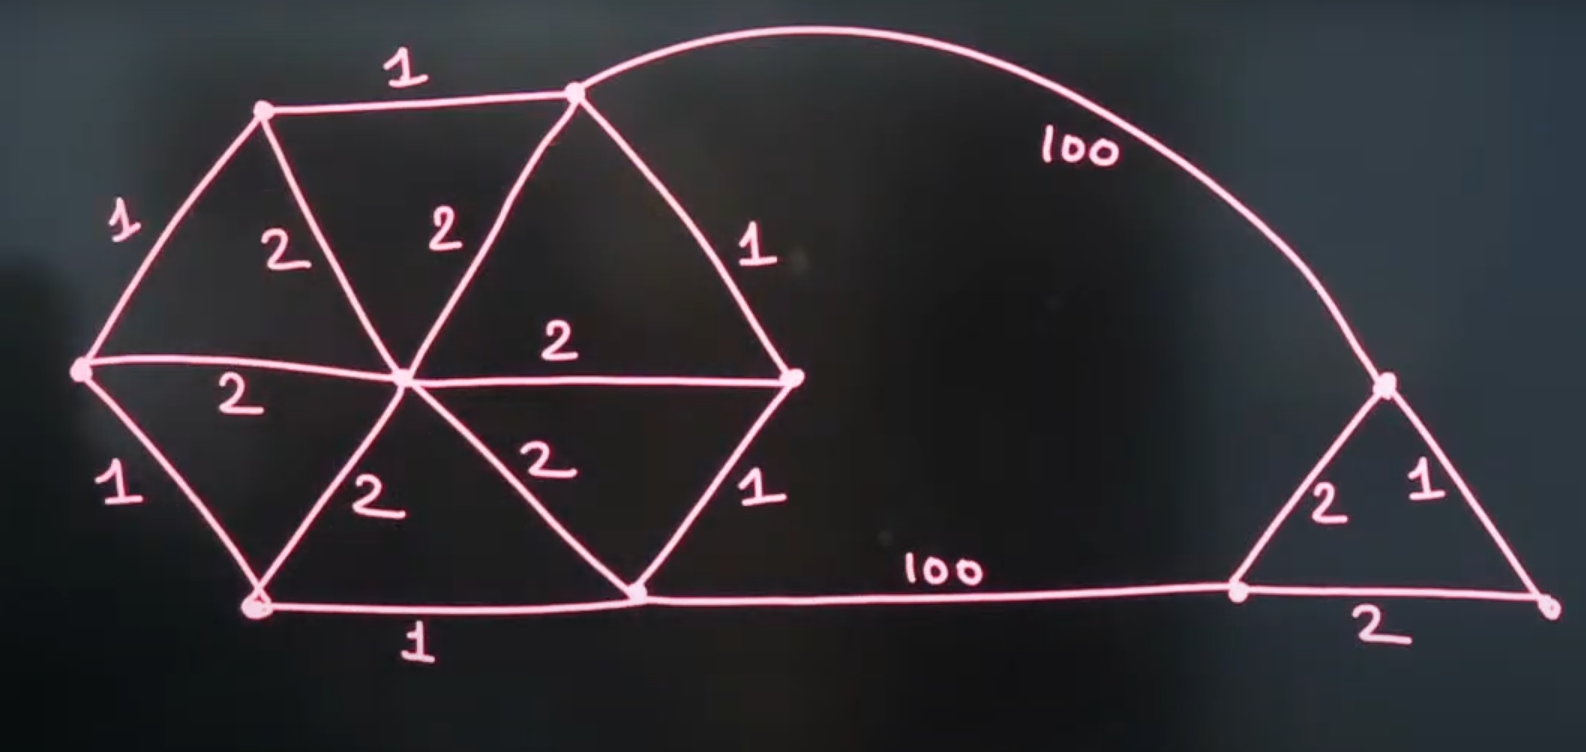 1
100
1
2
2
1
2
2
1
2
2
1
2
1
100
1
2